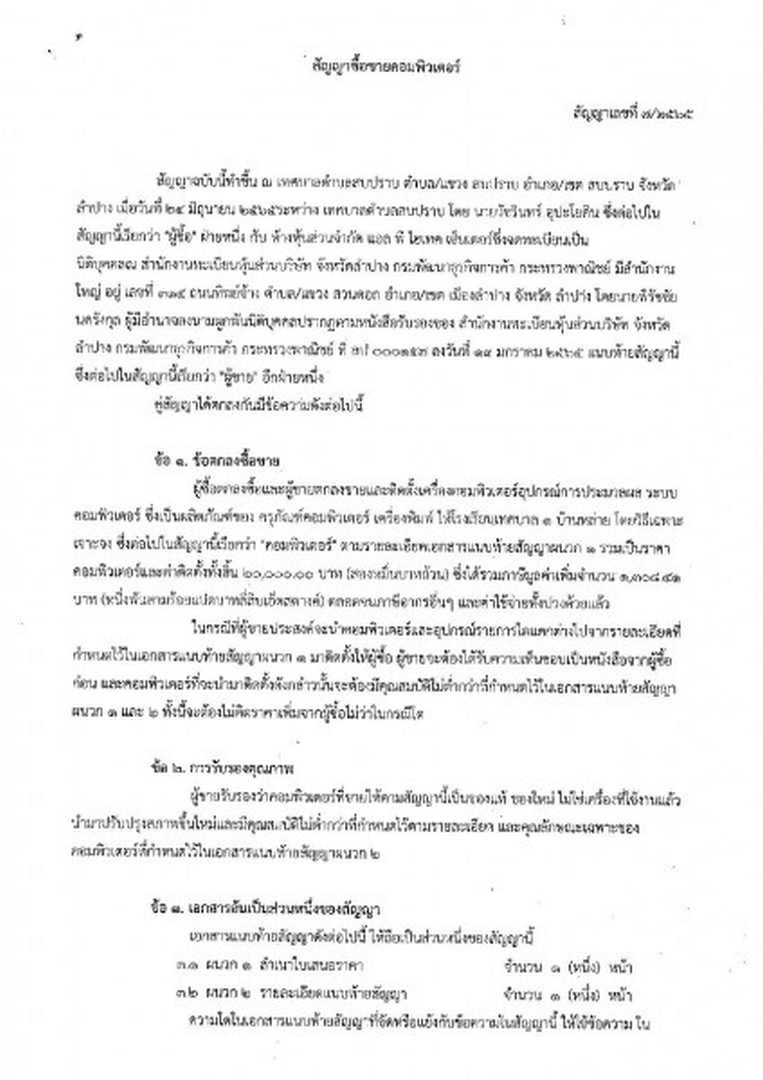 สัญญาซื้อขายคอมพิวเตอร์
สัญญาเลขที่ ๗/๒๕๖๕
สัญญาฉบับนี้ทำขึ้น ณ เทศบาลตำบลสบปราบ ตำบล/แขวง สบปราบ อำเภอ/เขต สบปราบ จังหวัด
ลำปาง เมื่อวันที่ ๒๔ มิถุนายน ๒๕๖๕ระหว่าง เทศบาลตำบลสบปราบ โดย นายวัชรินทร์ อุปะโยคิน ซึ่งต่อไปใน
สัญญานี้เรียกว่า "ผู้ซื้อ" ฝ่ายหนึ่ง กับ ห้างหุ้นส่วนจำกัด แอล พี ไฮเทค เซ็นเตอร์ซึ่งจดทะเบียนเป็น
นิติบุคคลณ สำนักงานทะเบียนหุ้นส่วนบริษัท จังหวัดลำปาง กรมพัฒนาธุรกิจการค้า กระทรวงพาณิชย์ มีสำนักงาน
ใหญ่ อยู่ เลขที่ ถนนทิพย์ช้าง ตำบล/แขวง สวนดอก อำเภอ/เขต เมืองลำปาง จังหวัด ลำปาง โดยนายพีรัชชัย
ผู้มีอำนาจลงนามผูกพันนิติบุคคลปรากฏตามหนังสือรับรองของ สำนักงานทะเบียนหุ้นส่วนบริษัท จังหวัด
ลำปาง กรมพัฒนาธุรกิจการค้า กระทรวงพาณิชย์ ที่ ลงวันที่ ๑๙ มกราคม ๒๕๖๕ แนบท้ายสัญญานี้
ซึ่งต่อไปในสัญญานี้เรียกว่า "ผู้ขาย" อีกฝ่ายหนึ่ง
คู่สัญญาได้ตกลงกันมีข้อความดังต่อไปนี้
ข้อ ๑. ข้อตกลงซื้อขาย
ผู้ซื้อตกลงซื้อและผู้ขายตกลงขายและติดตั้งเครื่องคอมพิวเตอร์อุปกรณ์การประมวลผล ระบบ
คอมพิวเตอร์ ซึ่งเป็นผลิตภัณฑ์ของ ครุภัณฑ์คอมพิวเตอร์ เครื่องพิมพ์ ให้โรงเรียนเทศบาล ๑ บ้านหล่าย โดยวิธีเฉพาะ
เจาะจง ซึ่งต่อไปในสัญญานี้เรียกว่า "คอมพิวเตอร์" ตามรายละเอียดเอกสารแนบท้ายสัญญาผนวก ๑ รวมเป็นราคา
คอมพิวเตอร์และค่าติดตั้งทั้งสิ้น ๒๐,๐๐๐.๐๐ บาท (สองหมื่นบาทถ้วน) ซึ่งได้รวมภาษีมูลค่าเพิ่มจำนวน ๑,๓๐๘.๔๑
บาท (หนึ่งพันสามร้อยแปดบาทสี่สิบเอ็ดสตางค์) ตลอดจนภาษีอากรอื่นๆ และค่าใช้จ่ายทั้งปวงด้วยแล้ว
ในกรณีที่ผู้ขายประสงค์จะนำคอมพิวเตอร์และอุปกรณ์รายการใดแตกต่างไปจากรายละเอียดที่
กำหนดไว้ในเอกสารแนบท้ายสัญญาผนวก ๑ มาติดตั้งให้ผู้ซื้อ ผู้ขายจะต้องได้รับความเห็นชอบเป็นหนังสือจากผู้ซื้อ
ก่อน และคอมพิวเตอร์ที่จะนำมาติดตั้งดังกล่าวนั้นจะต้องมีคุณสมบัติไม่ต่ำกว่าที่กำหนดไว้ในเอกสารแนบท้ายสัญญา
ผนวก ๑ และ ๒ ทั้งนี้จะต้องไม่คิดราคาเพิ่มจากผู้ซื้อไม่ว่าในกรณีใด
ข้อ ๒. การรับรองคุณภาพ
ผู้ขายรับรองว่าคอมพิวเตอร์ที่ขายให้ตามสัญญานี้เป็นของแท้ ของใหม่ ไม่ใช่เครื่องที่ใช้งานแล้ว
นำมาปรับปรุงสภาพขึ้นใหม่และมีคุณสมบัติไม่ต่ำกว่าที่กำหนดไว้ตามรายละเอียด และคุณลักษณะเฉพาะของ
คอมพิวเตอร์ที่กำหนดไว้ในเอกสารแนบท้ายสัญญาผนวก ๒
ข้อ ๓. เอกสารอันเป็นส่วนหนึ่งของสัญญา
เอกสารแนบท้ายสัญญาดังต่อไปนี้ ให้ถือเป็นส่วนหนึ่งของสัญญานี้
๓.๑ ผนวก ๑ สำเนาใบเสนอราคา จำนวน ๑ (หนึ่ง) หน้า
๓.๒ ผนวก ๒ รายละเอียดแนบท้ายสัญญา จำนวน ๑ (หนึ่ง) หน้า
ความใดในเอกสารแนบท้ายสัญญาที่ขัดหรือแย้งกับข้อความในสัญญานี้ ให้ใช้ข้อความ ใน